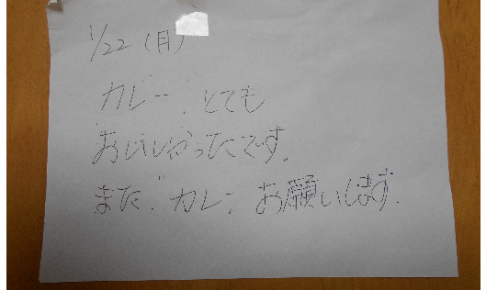 1/22(月)
カレー、とても
おいしかったです。
また、カレーお願いします。